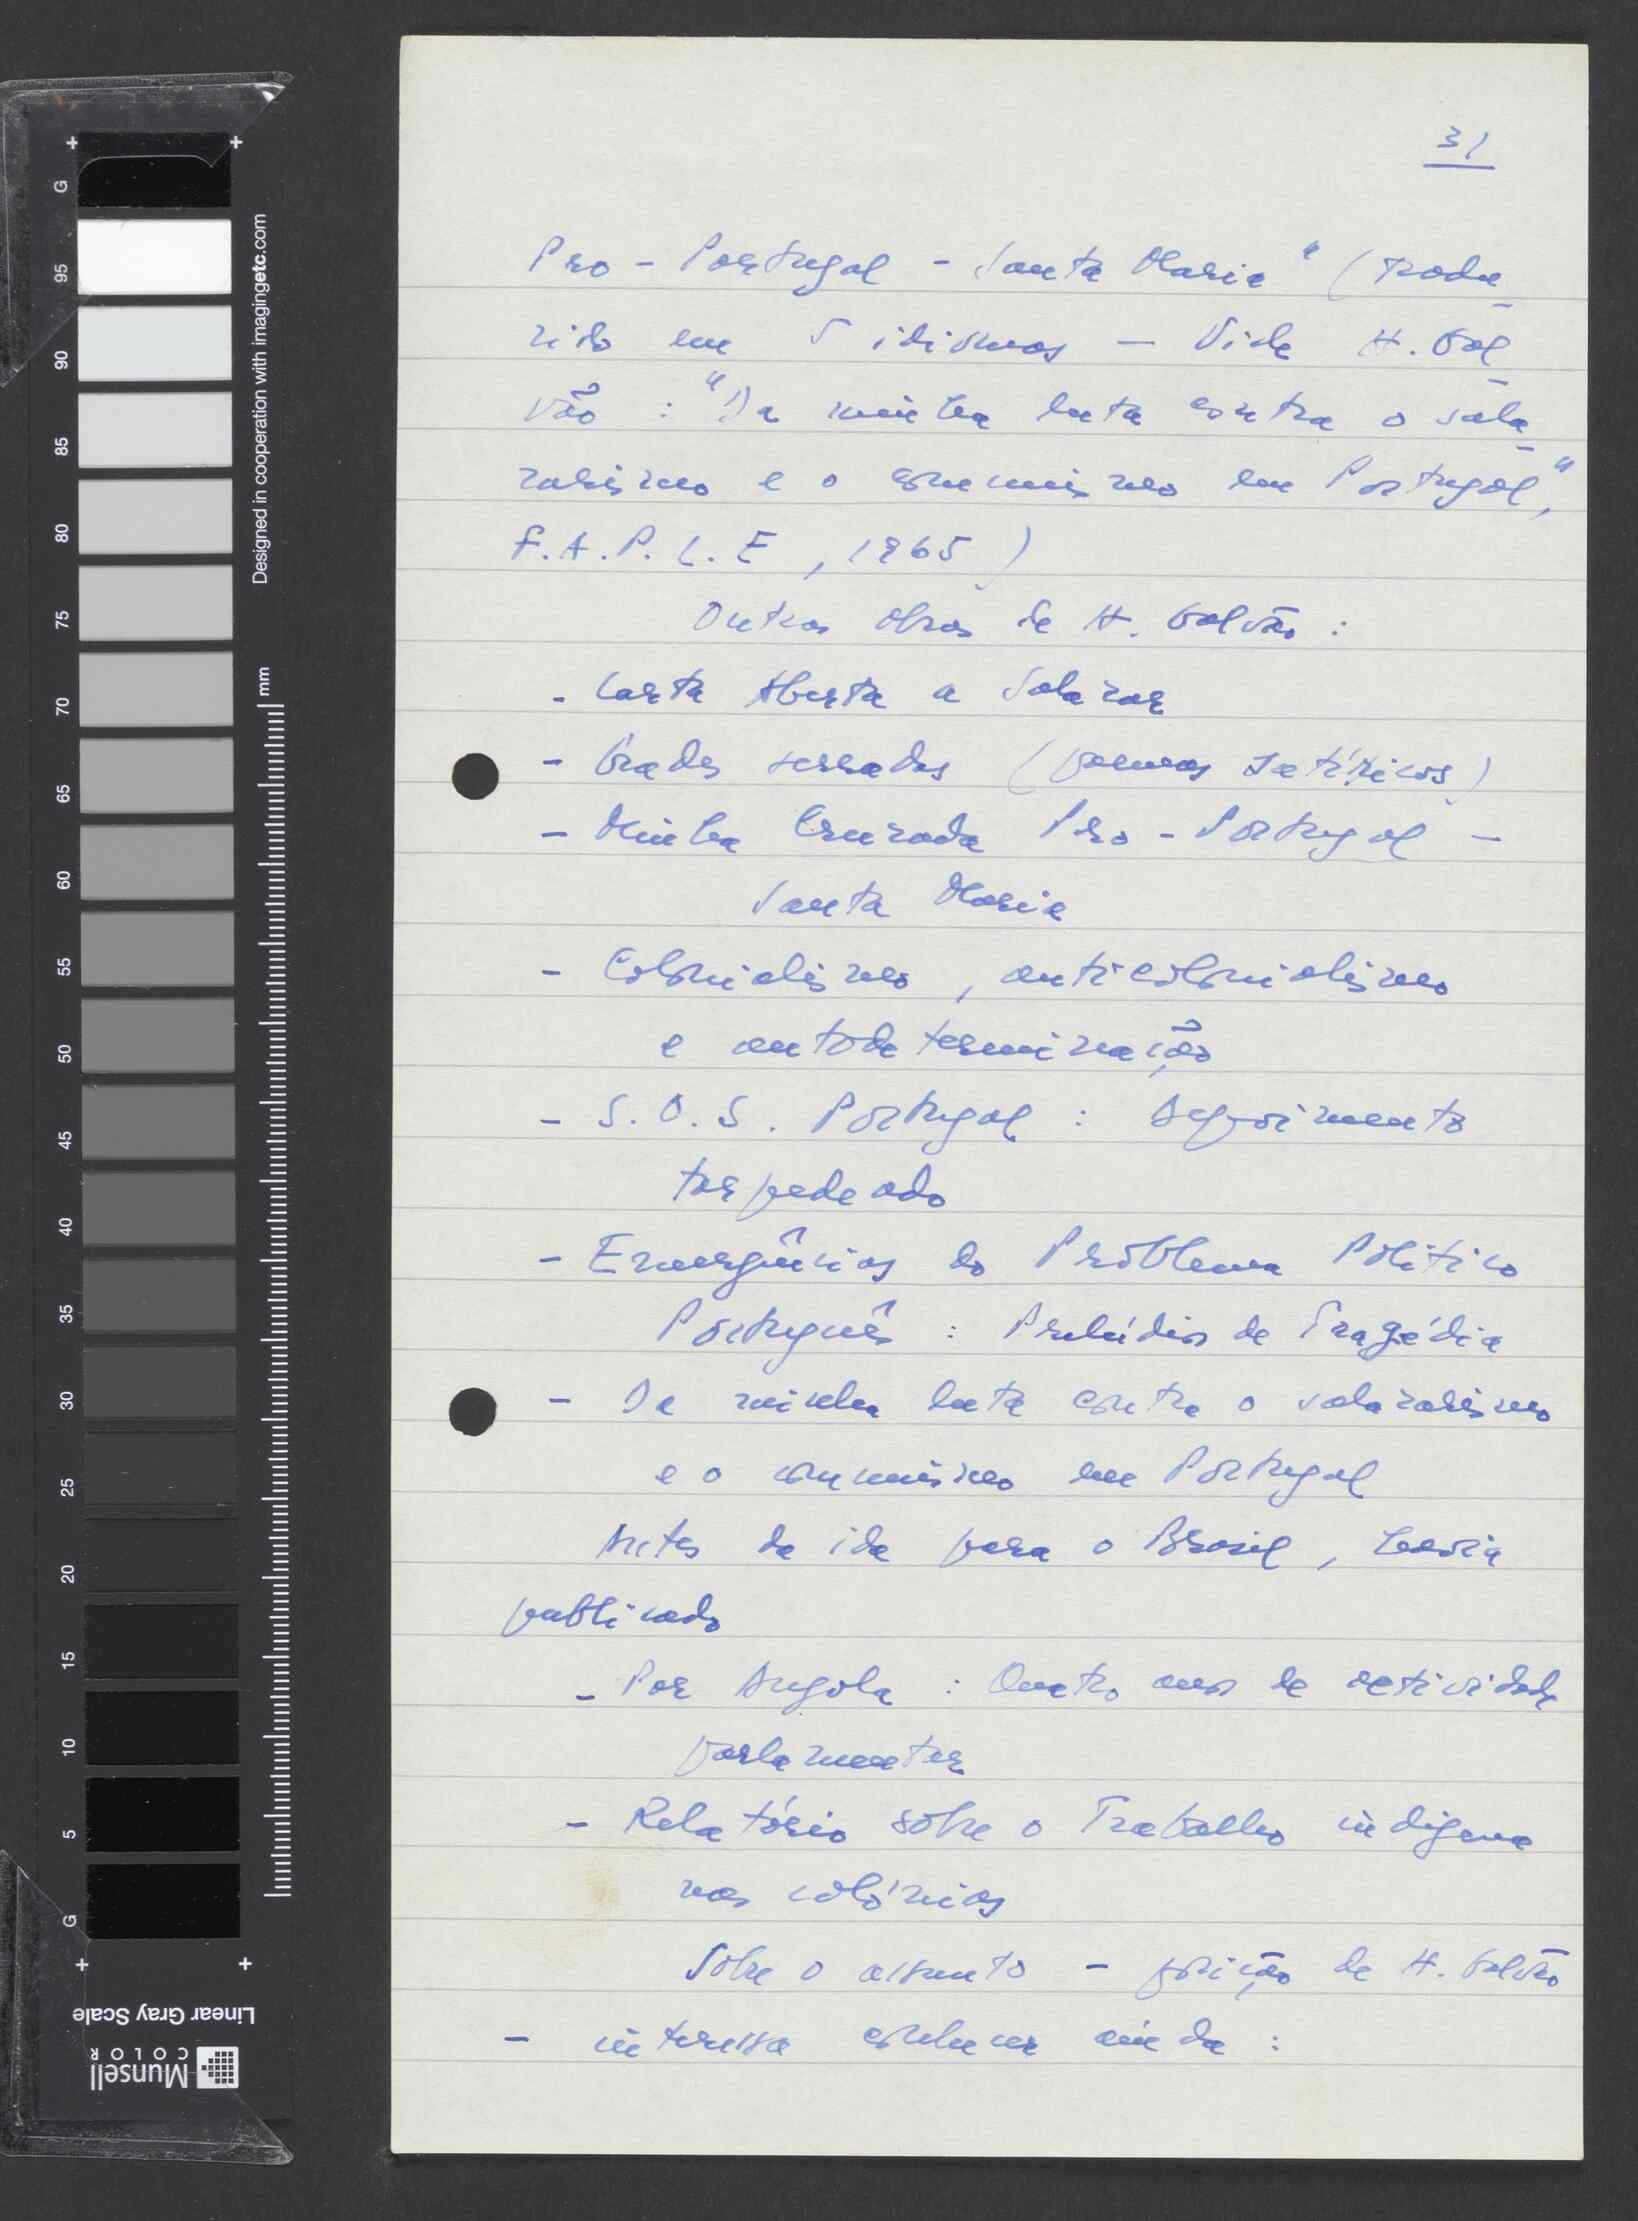 31
Pro - Portugal - Santa Maria" (tradu-
zido em 5 idiomas - Vide H. Gal-
vão : "Da minha luta contra o sala-
zarismo e o comunismo em Portugal",
F.A.P.L.E, 1965)
Outras obras de H. Galvão :
- Carta Aberta a Salazar
- Grades serradas (poemas satíricos)
- Minha Cruzada Pro - Portugal -
Santa Maria
- Colonialismo, anticolonialismo
e autodeterminação
- S.O.S. Portugal : Depoimento
torpedeado
- Emergências do Problema Político
Português : Prelúdios de Tragédia
- Da minha luta contra o salazarismo
e o comunismo em Portugal
Antes da ida para o Brasil, havia
publicado
- Por Angola : Quatro anos de actividade
parlamentar
- Relatório sobre o Trabalho indígena
nas colónias
Sobre o assunto - posição de H. Galvão
- interessa conhecer ainda :
G
95
90
85
80
75
70
65
60
55
50
45
40
35
30
25
20
15
10
5
G
mm
Designed in cooperation with imagingetc.com
Linear Gray Scale
Munsell
COLOR